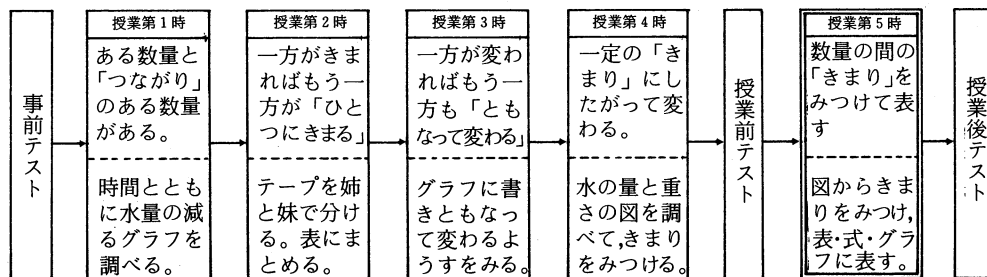 事前テスト
授業第1時
ある数量と
「つながり」
のある数量
がある。
時間ととも
に水量の減
るグラフを
調べる。
授業第2時
一方がきま
ればもう一
方が「ひと
つにきまる」
テープを姉
と妹で分け
る。表にま
とめる。
授業第3時
一方が変わ
ればもう一
方も「とも
なって変わる」
グラフに書
きともなっ
て変わるよ
うすをみる。
授業第4時
一定の「き
まり」にし
たがって変
わる。
水の量と重
さの図を調
べて,きまり
をみつける。
授業前テスト
授業第5時
数量の間の
「きまり」を
みつけて表
す
図からきま
りをみつけ,
表・式・グラ
フに表す。
授業後テスト